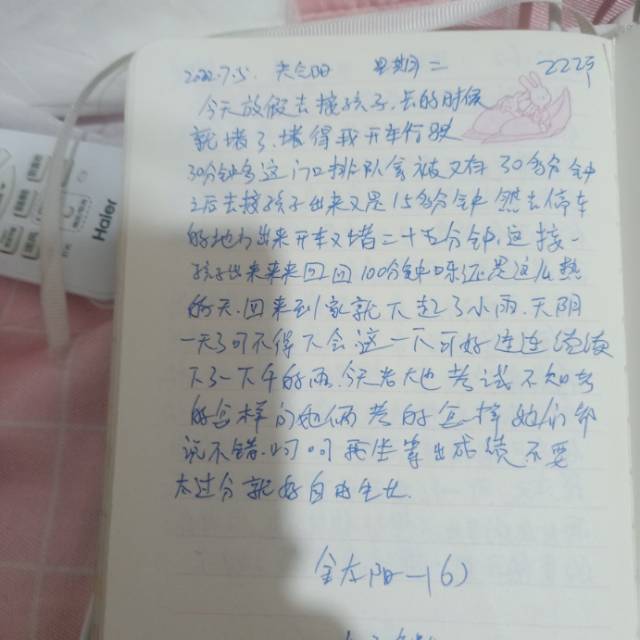 2022.7.5. 大太阳 星期二 222天
今天放假去接孩子.去的时候
就堵了.堵得我开车行驶
30分钟多这门口排队拿被又有30多分钟
之后去接孩子出来又是15多分钟 然去停车
的地方出来开车又堵二十五分钟.这接一
孩子出来来来回回100分钟呀还是这么热
的天.回来到家就下起了小雨.天阴
一天了可不得下会 这一下可好 连连
下了一下午的雨. 考试不知考
的怎样问她俩考的怎样她们都
说不错.呵呵 等出成绩不要
太过分就好自由生长.
(6)
Haier